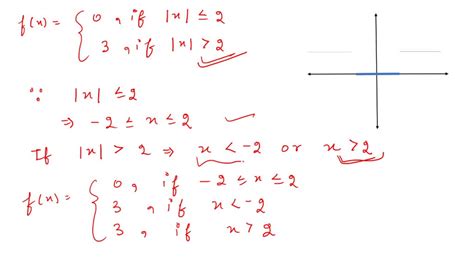 f(x) = { 0 , if |x| ≤ 2
3 , if |x| > 2
∵ |x| ≤ 2
⇒ -2 ≤ x ≤ 2
If |x| > 2 ⇒ x < -2 or x > 2
f(x) = { 0 , if -2 ≤ x ≤ 2
3 , if x < -2
3 , if x > 2